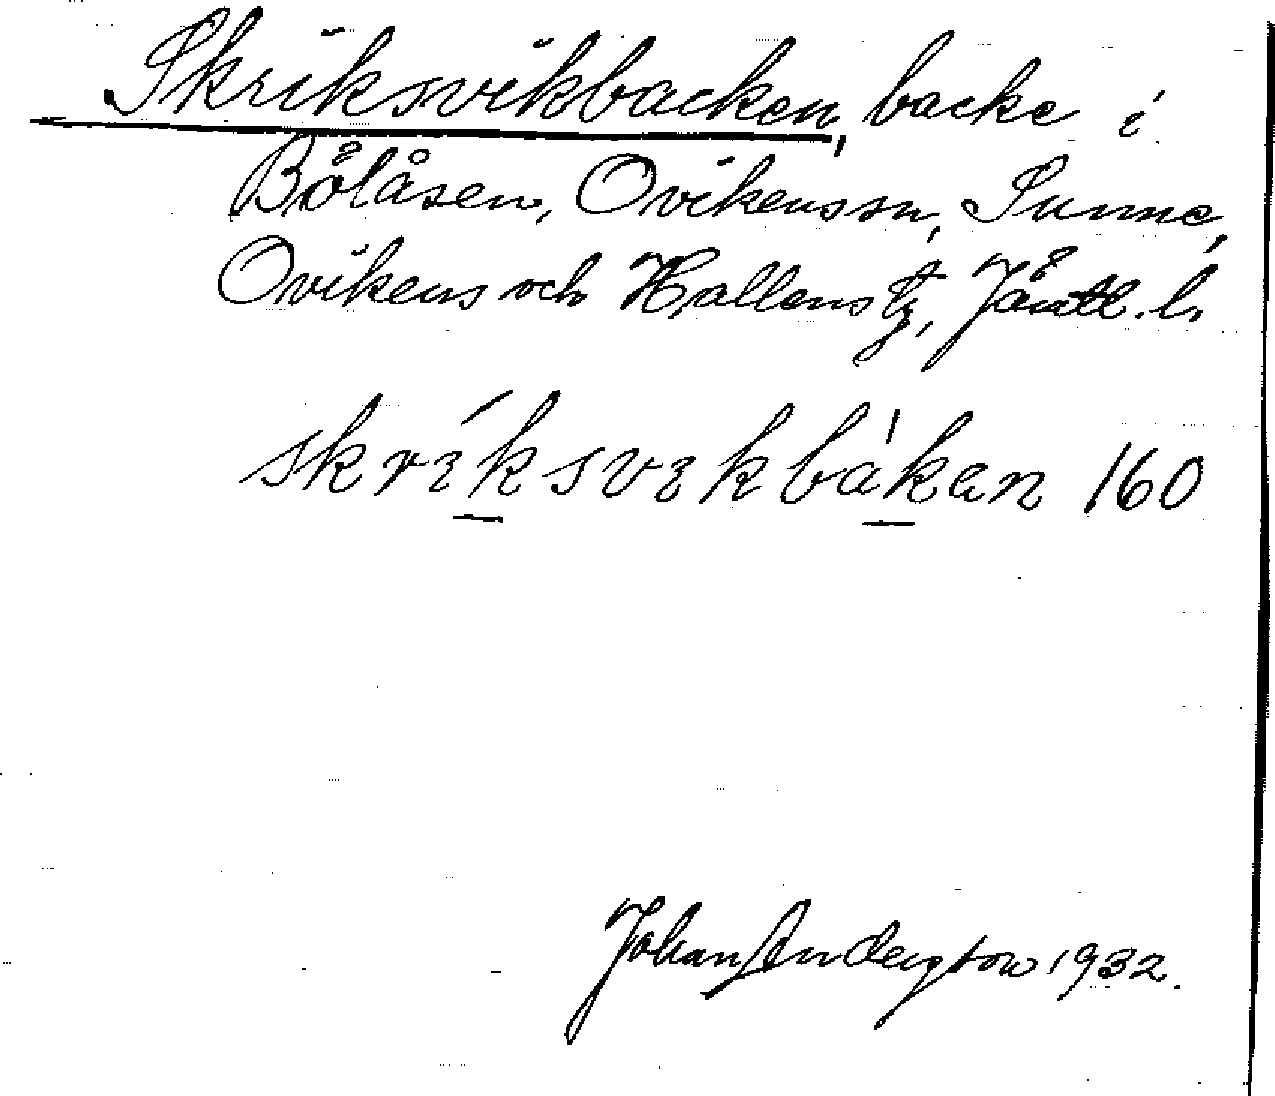 Skriksvikbacken, backe i
Bölåsen, Ovikens sn, Sunne,
Ovikens och Hallens tg, Jämtl. l.
skríksvikbákan 160
Johan Anderson 1932.